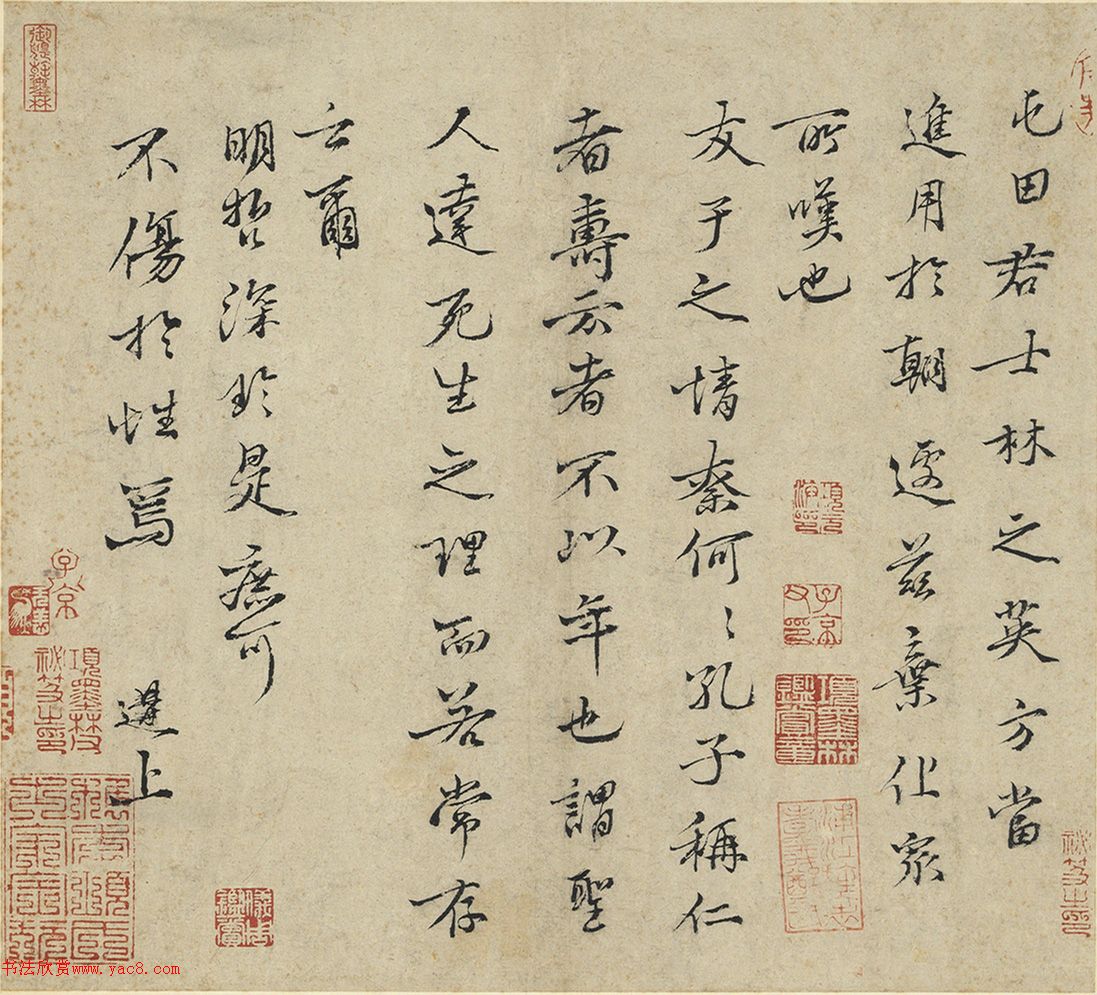 屯田君士林之英方當
進用於朝遽茲棄化眾
所嘆也
友于之情奈何〻孔子稱仁
者壽云者不以年也謂聖
人達死生之理而若常存
云爾
明哲深於是庶可
不傷於性焉 選上
項墨林
秘笈之印
子京
書法欣赏www.yac8.com